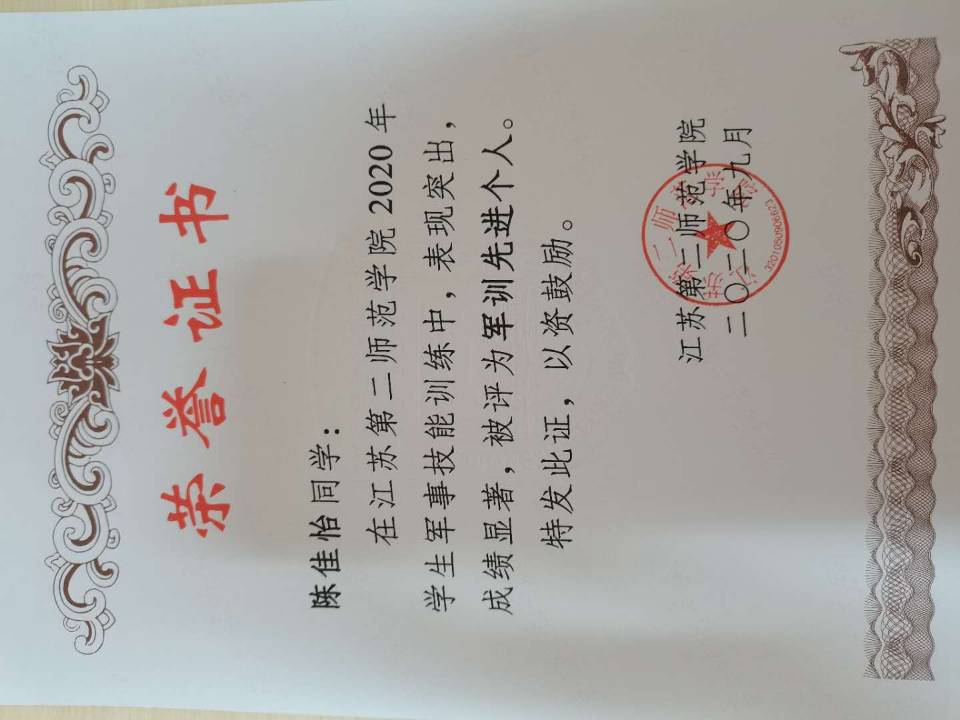 荣誉证书
陈佳怡同学：
在江苏第二师范学院2020年
学生军事技能训练中，表现突出，
成绩显著，被评为军训先进个人。
特发此证，以资鼓励。
江苏第二师范学院
二〇二〇年九月